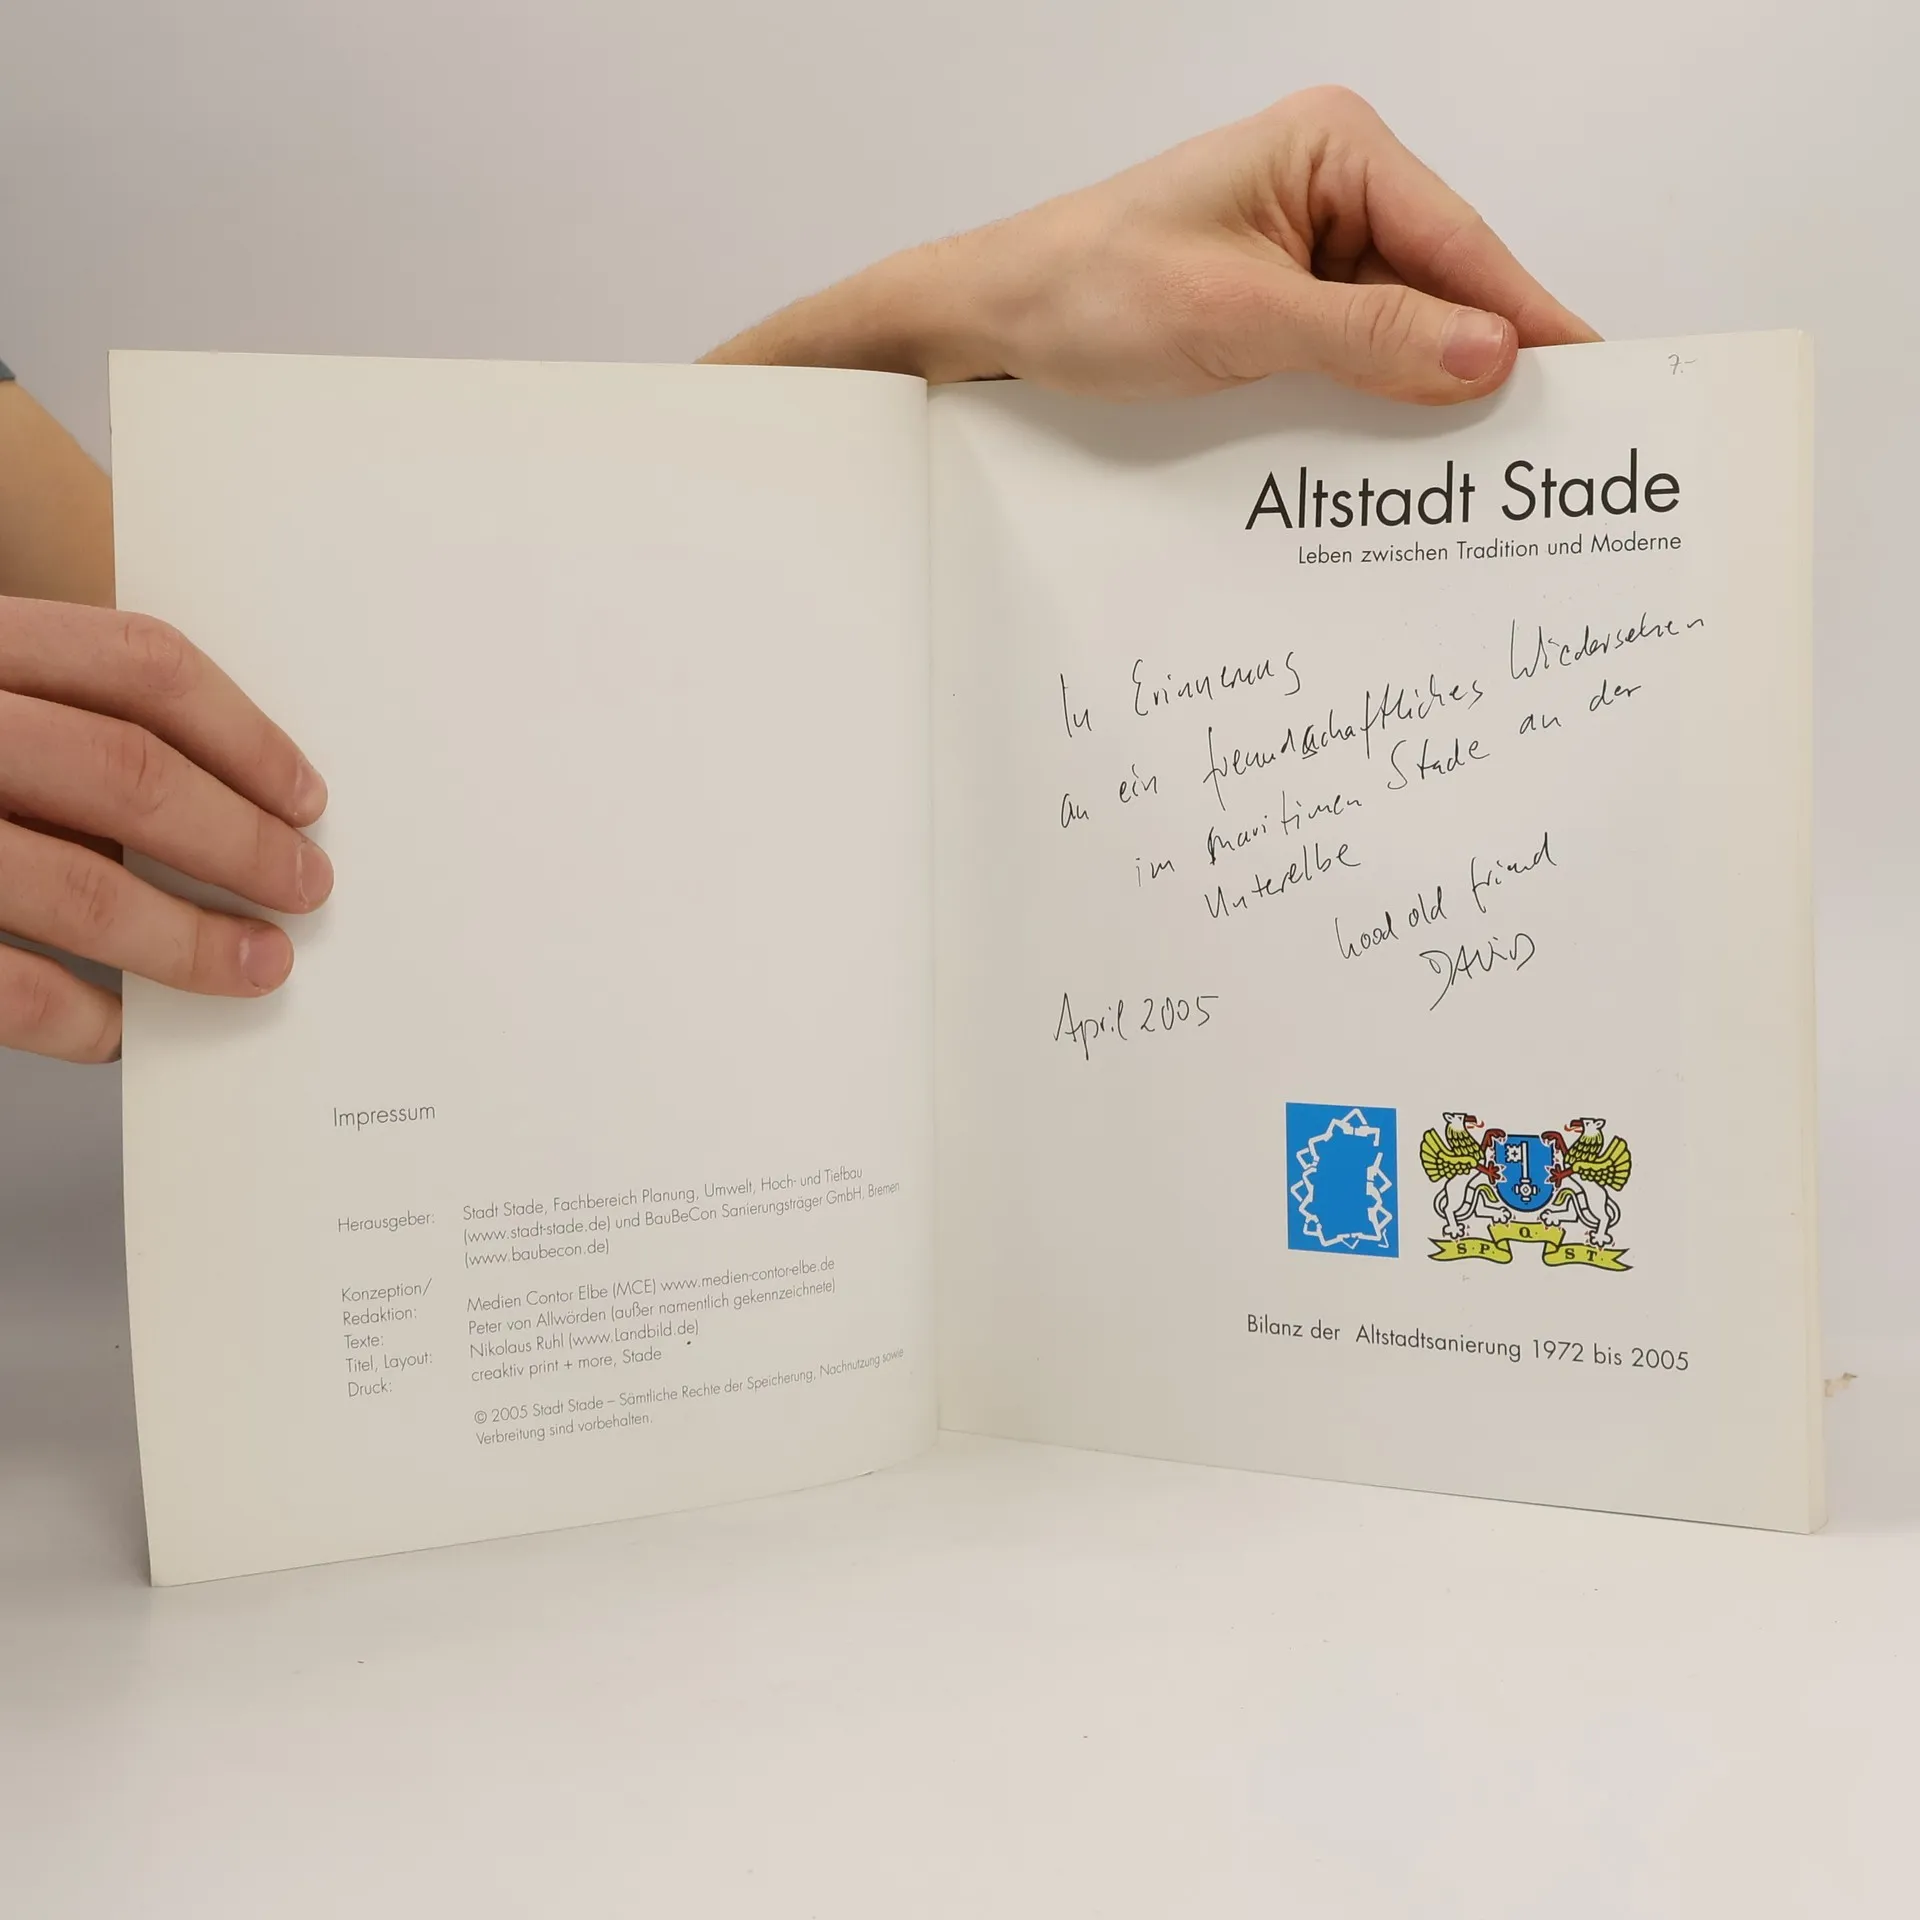 Impressum
Herausgeber: Stadt Stade, Fachbereich Planung, Umwelt, Hoch- und Tiefbau
(www.stadt-stade.de) und BauBeCon Sanierungsträger GmbH, Bremen
(www.baubecon.de)
Konzeption/
Redaktion: Medien Contor Elbe (MCE) www.medien-contor-elbe.de
Texte: Peter von Allwörden (außer namentlich gekennzeichnete)
Titel, Layout: Nikolaus Ruhl (www.Landbild.de)
Druck: creaktiv print + more, Stade
© 2005 Stadt Stade – Sämtliche Rechte der Speicherung, Nachnutzung sowie
Verbreitung sind vorbehalten.
7.-
Altstadt Stade
Leben zwischen Tradition und Moderne
In Erinnerung
an ein freundschaftliches Wiedersehen
im maritimen Stade an der
Unterelbe
Good old friend
DAViD
April 2005
S. P. Q. S T.
Bilanz der Altstadtsanierung 1972 bis 2005